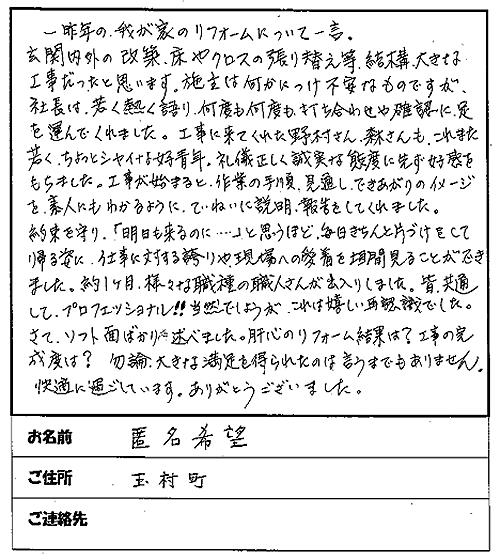 一昨年の、我が家のリフォームについて一言。
玄関内外の改築、床やクロスの張り替え等、結構大きな
工事だったと思います。施主は何かにつけ不安なものですが、
社長は、若く熱く語り、何度も何度も、打ち合わせや確認に、足
を運んでくれました。工事に来てくれた野村さん、森さんも、これまた
若く、ちょっとシャイな好青年。礼儀正しく誠実な態度に先ず好感を
もちました。工事が始まると、作業の手順、見通し、できあがりのイメージ
を、素人にもわかるように、ていねいに説明、報告をしてくれました。
約束を守り、「明日も来るのに……」と思うほど、毎日きちんと片づけをして
帰る姿に、仕事に対する誇りや現場への愛着を垣間見ることができ
ました。約1ヶ月、様々な職種の職人さんが出入りしました。皆、共通
して、プロフェッショナル!!当然でしょうが、これは嬉しい再認識でした。
さて、ソフト面ばかり述べました。肝心のリフォーム結果は？工事の完
成度は？ 勿論、大きな満足を得られたのは言うまでもありません。
快適に過ごしています。ありがとうございました。
お名前 匿名希望
ご住所 玉村町
ご連絡先